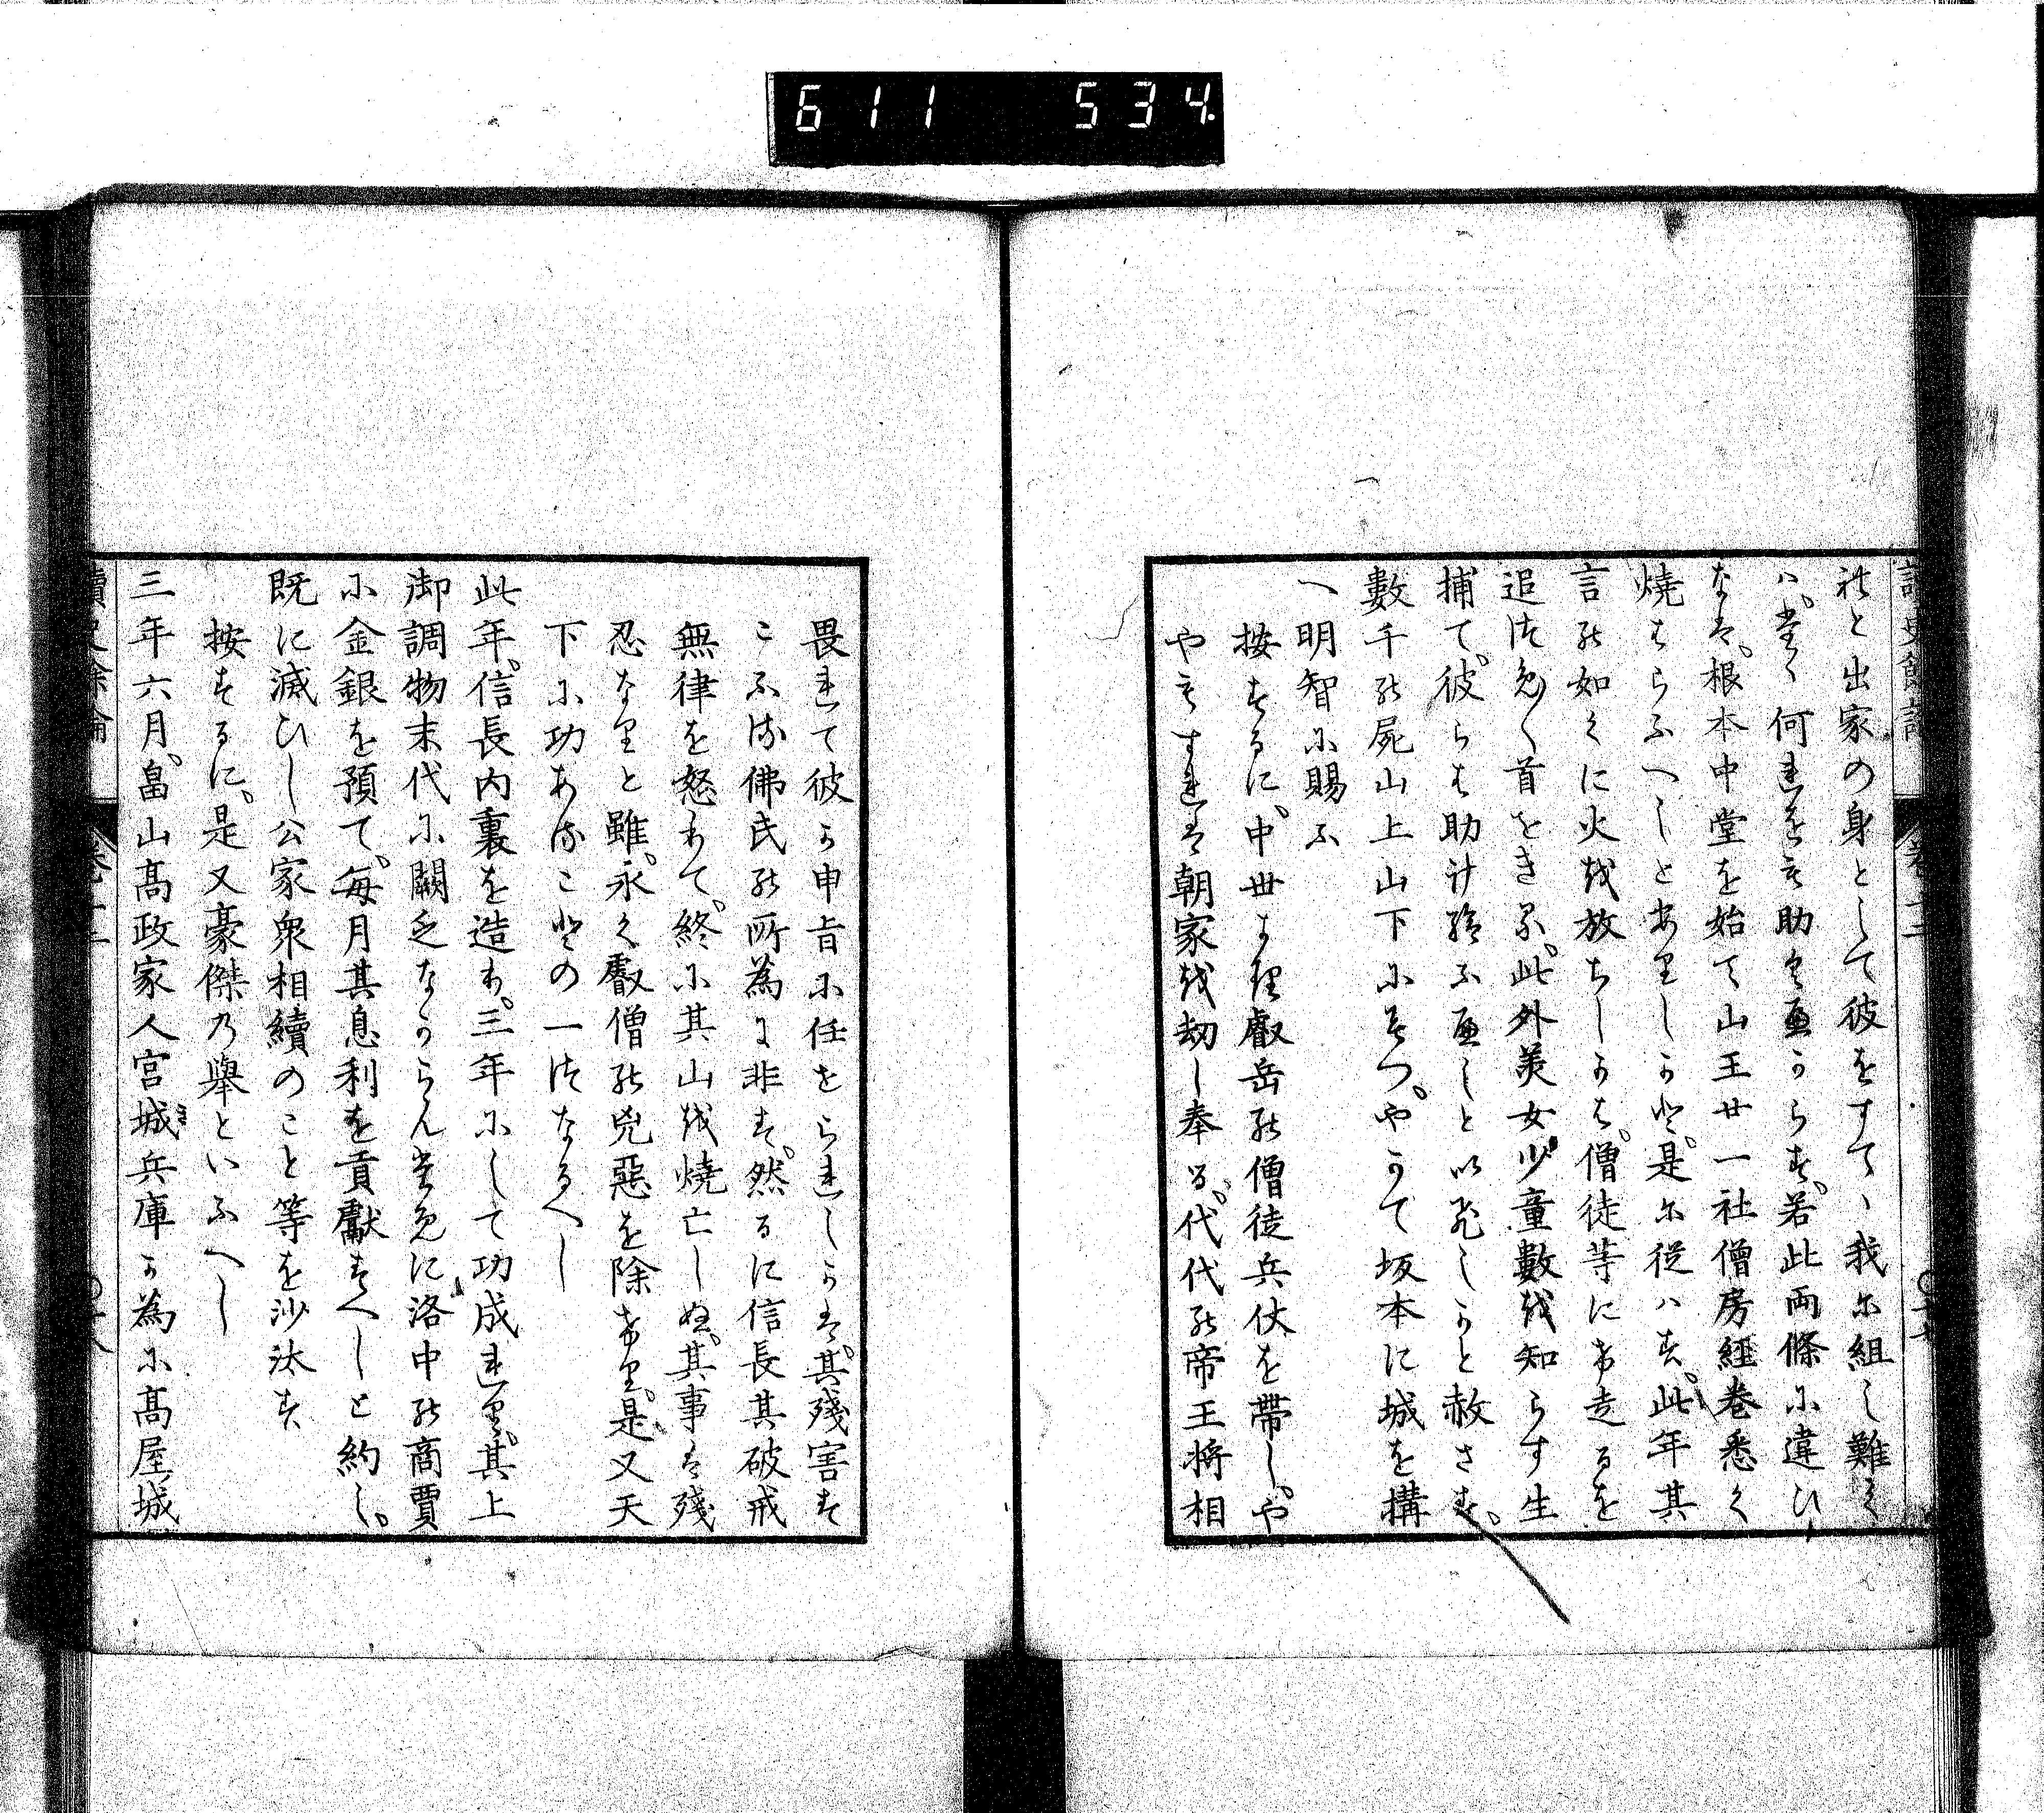 611 534.
讀史餘論 卷十二 ○十七
れと出家の身として彼をすてゝ我に組し難く
ハ堂く何れをも助く可からす。若此両條に違ひ
なは。根本中堂を始て山王廿一社僧房經巻悉く
燒はらふへしとありしかと。是に従ハす。此年其
言の如くに火を放ちしかは。僧徒等にけ走るを
追つめ〱首をきる。此外美女少童數を知らす生
捕て。彼らは助け給ふへしと以ひしかと赦さす。
數千の屍山上山下にみつ。やかて坂本に城を搆
へ明智に賜ふ
按するに。中世より叡岳の僧徒兵仗を帶し。や
やもすれは朝家を劫し奉る。代代の帝王将相
畏れて彼か申旨に任せられしかは。其殘害す
こふる佛氏の所為に非す。然るに信長其破戒
無律を怒りて。終に其山を燒亡しぬ。其事は殘
忍なりと雖。永く叡僧の兇惡を除けり。是又天
下に功ある事の一つなるへし
此年。信長内裏を造り。三年にして功成れり。其上
御調物末代に闕乏なからんために洛中の商賈
に金銀を預て。每月其息利を貢獻すへしと約し。
既に滅ひし公家衆相續のこと等を沙汰す
按するに。是又豪傑の舉といふへし
三年六月。畠山髙政家人宮城兵庫か為に髙屋城
讀史餘論 卷十二 ○十八